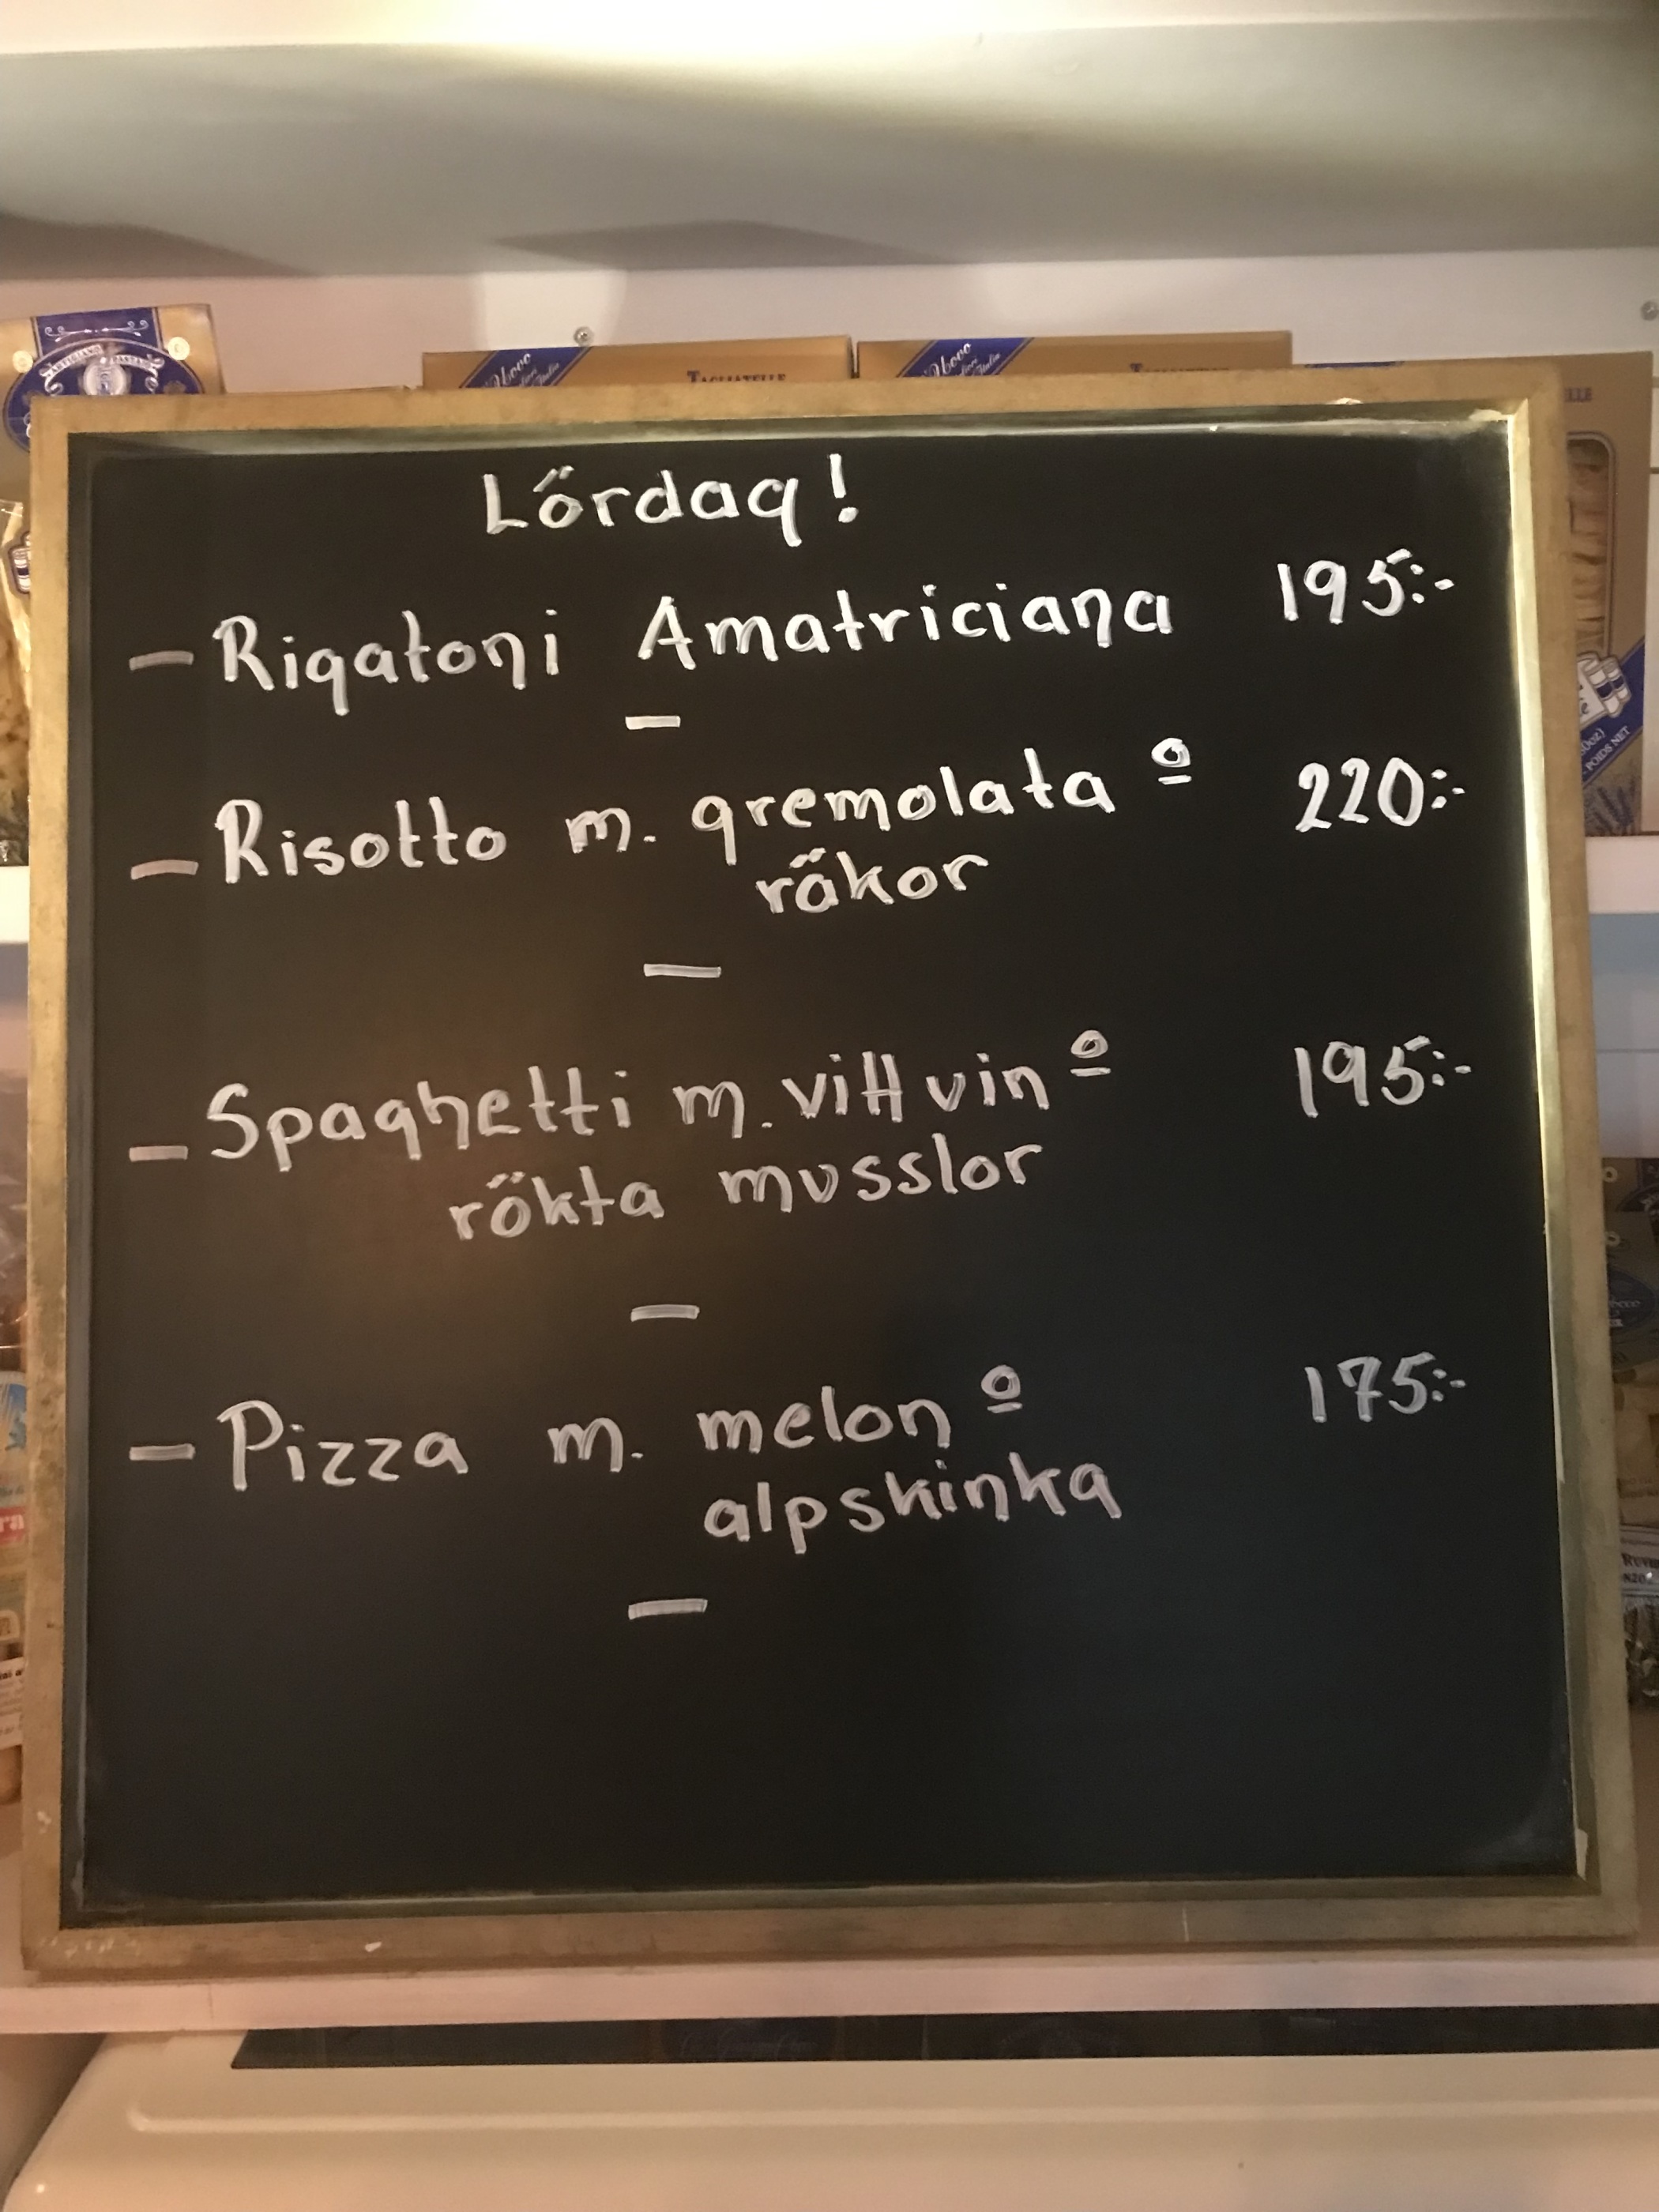 TAGLIATELLE
Lördag!
– Rigatoni Amatriciana 195:-
–
– Risotto m. gremolata º 220:-
räkor
–
– Spaghetti m. vitt vin º 195:-
rökta musslor
–
– Pizza m. melon º 175:-
alpskinka
–
POIDS NET